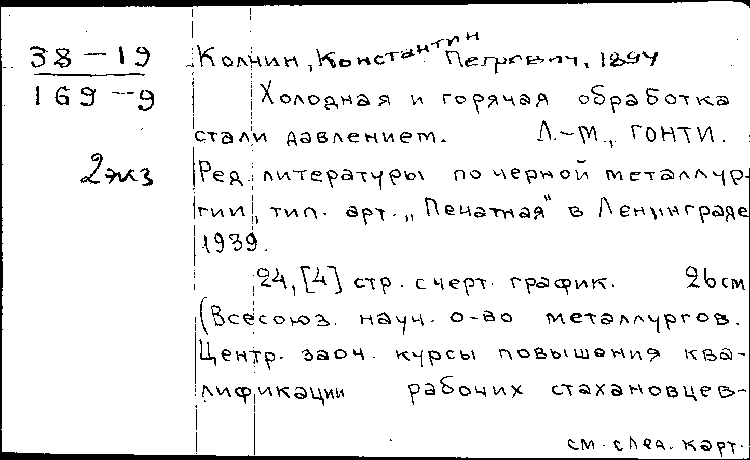 38-19
169-9
2 экз
Колчин, Константин Петрович, 1894
Холодная и горячая обработка
стали давлением. Л.-М., ГОНТИ.
Ред. литературы по черной металлур-
гии, тип. арт. „Печатная" в Ленинграде
1939.
24, [4] стр. с черт. график. 26 см
(Всесоюз. науч. о-во металлургов.
Центр. заоч. курсы повышения ква-
лификации рабочих стахановцев-
см. след. карт.